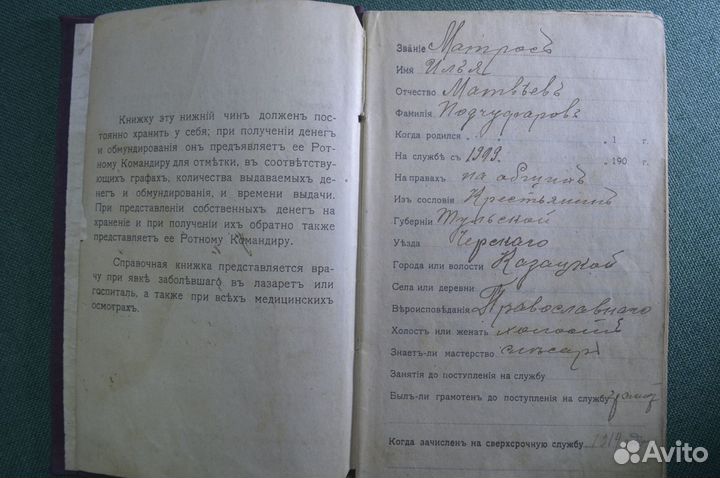 Книжку эту нижній чинъ долженъ пос-
тоянно хранить у себя; при полученіи денегъ
и обмундированія онъ предъявляетъ ее Рот-
ному Командиру для отмѣтки, въ соотвѣтствую-
щихъ графахъ, количества выдаваемыхъ де-
негъ и обмундированія, и времени выдачи.
При представленіи собственныхъ денегъ на
храненіе и при полученіи ихъ обратно также
представляетъ ее Ротному Командиру.
Справочная книжка представляется вра-
чу при явкѣ заболѣвшаго въ лазаретъ или
госпиталь, а также при всѣхъ медицинскихъ
осмотрахъ.
Званіе Матросъ
Имя Илья
Отчество Матвѣевъ
Фамилія Подчуфаровъ
Когда родился 1 г.
На службѣ съ 1909. 190 г.
На правахъ на общихъ
Изъ сословій Крестьянинъ
Губерніи Тульской
Уѣзда Чернскаго
Города или волости Казацкой
Села или деревни
Вѣроисповѣданія Православнаго
Холостъ или женатъ холостъ
Знаетъ-ли мастерство слесарь
Занятія до поступленія на службу
Былъ-ли грамотенъ до поступленія на службу грамот
Когда зачисленъ на сверхсрочную службу 1914
Avito